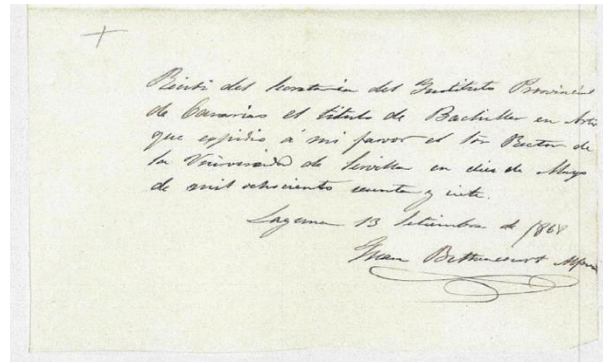 Recibí del Secretario del Instituto Provincial
de Canarias el título de Bachiller en Artes
que expidió á mi favor el Sor Rector de
la Universidad de Sevilla en diez de Mayo
de mil ochociento y siete.
Laguna 13 Setiembre de 1868
Juan Bethencourt Alfonso